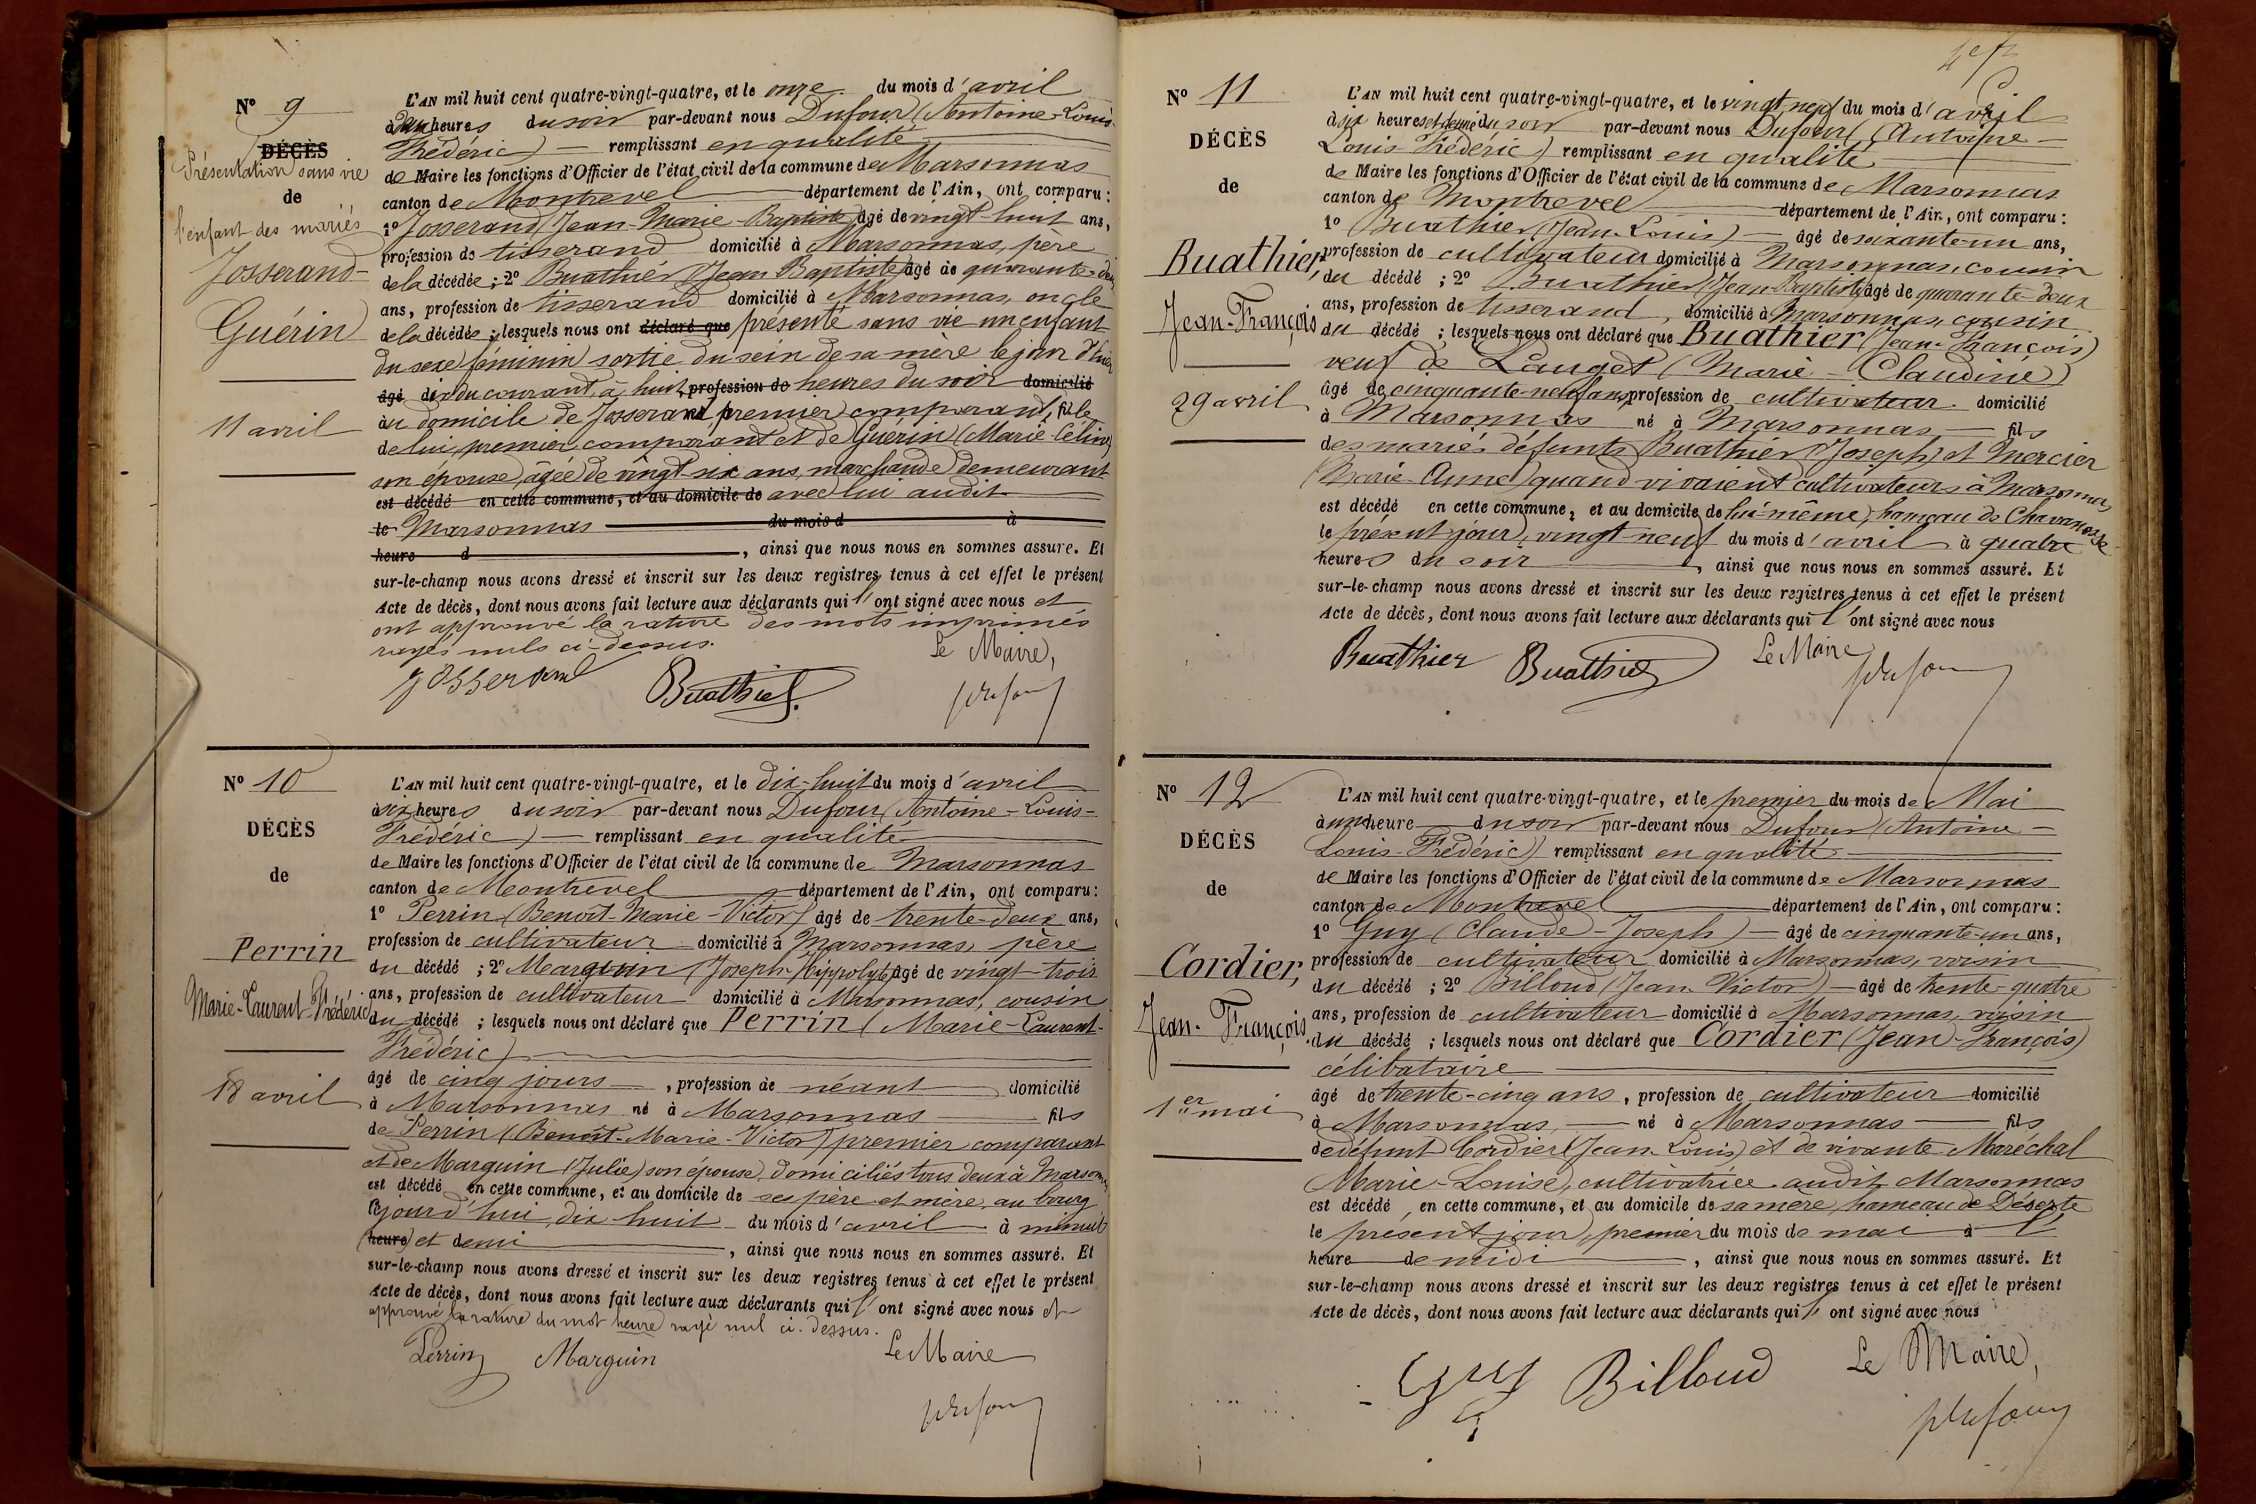 N° 9
DÉCÈS
Présentation sans vie
de
l'enfant des mariés
Josserand-
Guérin
11 avril
L'AN mil huit cent quatre-vingt-quatre, et le onze du mois d'avril
à deux heures du soir par-devant nous Dufour (Antoine-Louis-
Frédéric) remplissant en qualité
de Maire les fonctions d'Officier de l'état civil de la commune de Marsonnas
canton de Montrevel département de l'Ain, ont comparu :
1° Josserand (Jean-Marie-Baptiste) âgé de vingt-huit ans,
profession de tisserand domicilié à Marsonnas, père
de la décédée ; 2° Buathier (Jean Baptiste) âgé de quarante-deux
ans, profession de tisserand domicilié à Marsonnas, oncle
de la décédée ; lesquels nous ont déclaré que présenté sans vie un enfant
du sexe féminin sortie du sein de sa mère le jour d'hier
âgé dix du courant, à huit profession de heures du soir domicilié
au domicile de Josserand, premier comparant, fille
de lui, premier comparant et de Guérin (Marie Céline)
son épouse, âgée de vingt six ans, marchande demeurant
est décédé en cette commune, et au domicile de avec lui audit
le Marsonnas du mois d à
heure d , ainsi que nous nous en sommes assuré. Et
sur-le-champ nous avons dressé et inscrit sur les deux registres tenus à cet effet le présent
Acte de décès, dont nous avons fait lecture aux déclarants qui l'ont signé avec nous et
ont approuvé la rature des mots imprimés
rayés nuls ci-dessus.
Le Maire,
Josserand
Buathier
Dufour
N° 10
DÉCÈS
de
Perrin
Marie-Laurent-Frédéric
18 avril
L'AN mil huit cent quatre-vingt-quatre, et le dix-huit du mois d'avril
à six heures du soir par-devant nous Dufour (Antoine-Louis-
Frédéric) remplissant en qualité
de Maire les fonctions d'Officier de l'état civil de la commune de Marsonnas
canton de Montrevel département de l'Ain, ont comparu :
1° Perrin (Benoit-Marie-Victor) âgé de trente-deux ans,
profession de cultivateur domicilié à Marsonnas, père
du décédé ; 2° Marguin (Joseph-Hippolyte) âgé de vingt-trois
ans, profession de cultivateur domicilié à Marsonnas, cousin
du décédé ; lesquels nous ont déclaré que Perrin (Marie-Laurent-
Frédéric)
âgé de cinq jours , profession de néant domicilié
à Marsonnas né à Marsonnas fils
de Perrin (Benoit-Marie-Victor) premier comparant
et de Marguin (Julie) son épouse, domiciliés tous deux à Marsonnas
est décédé en cette commune, et au domicile de ses père et mère, au bourg
le jourd'hui dix-huit du mois d'avril à minuit
(heure) et demi , ainsi que nous nous en sommes assuré. Et
sur-le-champ nous avons dressé et inscrit sur les deux registres tenus à cet effet le présent
Acte de décès, dont nous avons fait lecture aux déclarants qui l'ont signé avec nous et
approuvé la rature du mot heure rayé nul ci-dessus.
Perrin Marguin Le Maire
Dufour
N° 11
DÉCÈS
de
Buathier,
Jean-François
29 avril
L'AN mil huit cent quatre-vingt-quatre, et le vingt neuf du mois d'avril
à six heures et demie du soir par-devant nous Dufour (Antoine-
Louis-Frédéric) remplissant en qualité
de Maire les fonctions d'Officier de l'état civil de la commune de Marsonnas
canton de Montrevel département de l'Ain, ont comparu :
1° Buathier (Jean-Louis) âgé de soixante-un ans,
profession de cultivateur domicilié à Marsonnas, cousin
du décédé ; 2° Buathier (Jean-Baptiste) âgé de quarante-deux
ans, profession de tisserand, domicilié à Marsonnas, cousin
du décédé ; lesquels nous ont déclaré que Buathier (Jean-François)
veuf de Lauget (Marie-Claudine)
âgé de cinquante-neuf ans, profession de cultivateur domicilié
à Marsonnas né à Marsonnas fils
des mariés défunts Buathier (Joseph) et Mercier
(Marie-Anne) quand vivaient cultivateurs à Marsonnas,
est décédé en cette commune, et au domicile de lui-même, hameau de Chavanosse
le présent jour, vingt-neuf du mois d'avril à quatre
heures du soir , ainsi que nous nous en sommes assuré. Et
sur-le-champ nous avons dressé et inscrit sur les deux registres tenus à cet effet le présent
Acte de décès, dont nous avons fait lecture aux déclarants qui l'ont signé avec nous
Buathier Buathier Le Maire
Dufour
N° 12
DÉCÈS
de
Cordier,
Jean-François.
1er mai
L'AN mil huit cent quatre-vingt-quatre, et le premier du mois de Mai
à une heure du soir par-devant nous Dufour (Antoine-
Louis-Frédéric) remplissant en qualité
de Maire les fonctions d'Officier de l'état civil de la commune de Marsonnas
canton de Montrevel département de l'Ain, ont comparu :
1° Guy (Claude-Joseph) âgé de cinquante-un ans,
profession de cultivateur domicilié à Marsonnas, voisin
du décédé ; 2° Billoud (Jean Victor) âgé de trente-quatre
ans, profession de cultivateur domicilié à Marsonnas, voisin
du décédé ; lesquels nous ont déclaré que Cordier (Jean-François)
célibataire
âgé de trente-cinq ans, profession de cultivateur domicilié
à Marsonnas, né à Marsonnas fils
de défunt Cordier (Jean-Louis) et de vivante Maréchal
(Marie-Louise), cultivatrice audit Marsonnas
est décédé, en cette commune, et au domicile de sa mère, hameau de Déserte
le présent jour, premier du mois de mai à l'
heure de midi , ainsi que nous nous en sommes assuré. Et
sur-le-champ nous avons dressé et inscrit sur les deux registres tenus à cet effet le présent
Acte de décès, dont nous avons fait lecture aux déclarants qui l'ont signé avec nous
Guy Billoud Le Maire,
Dufour